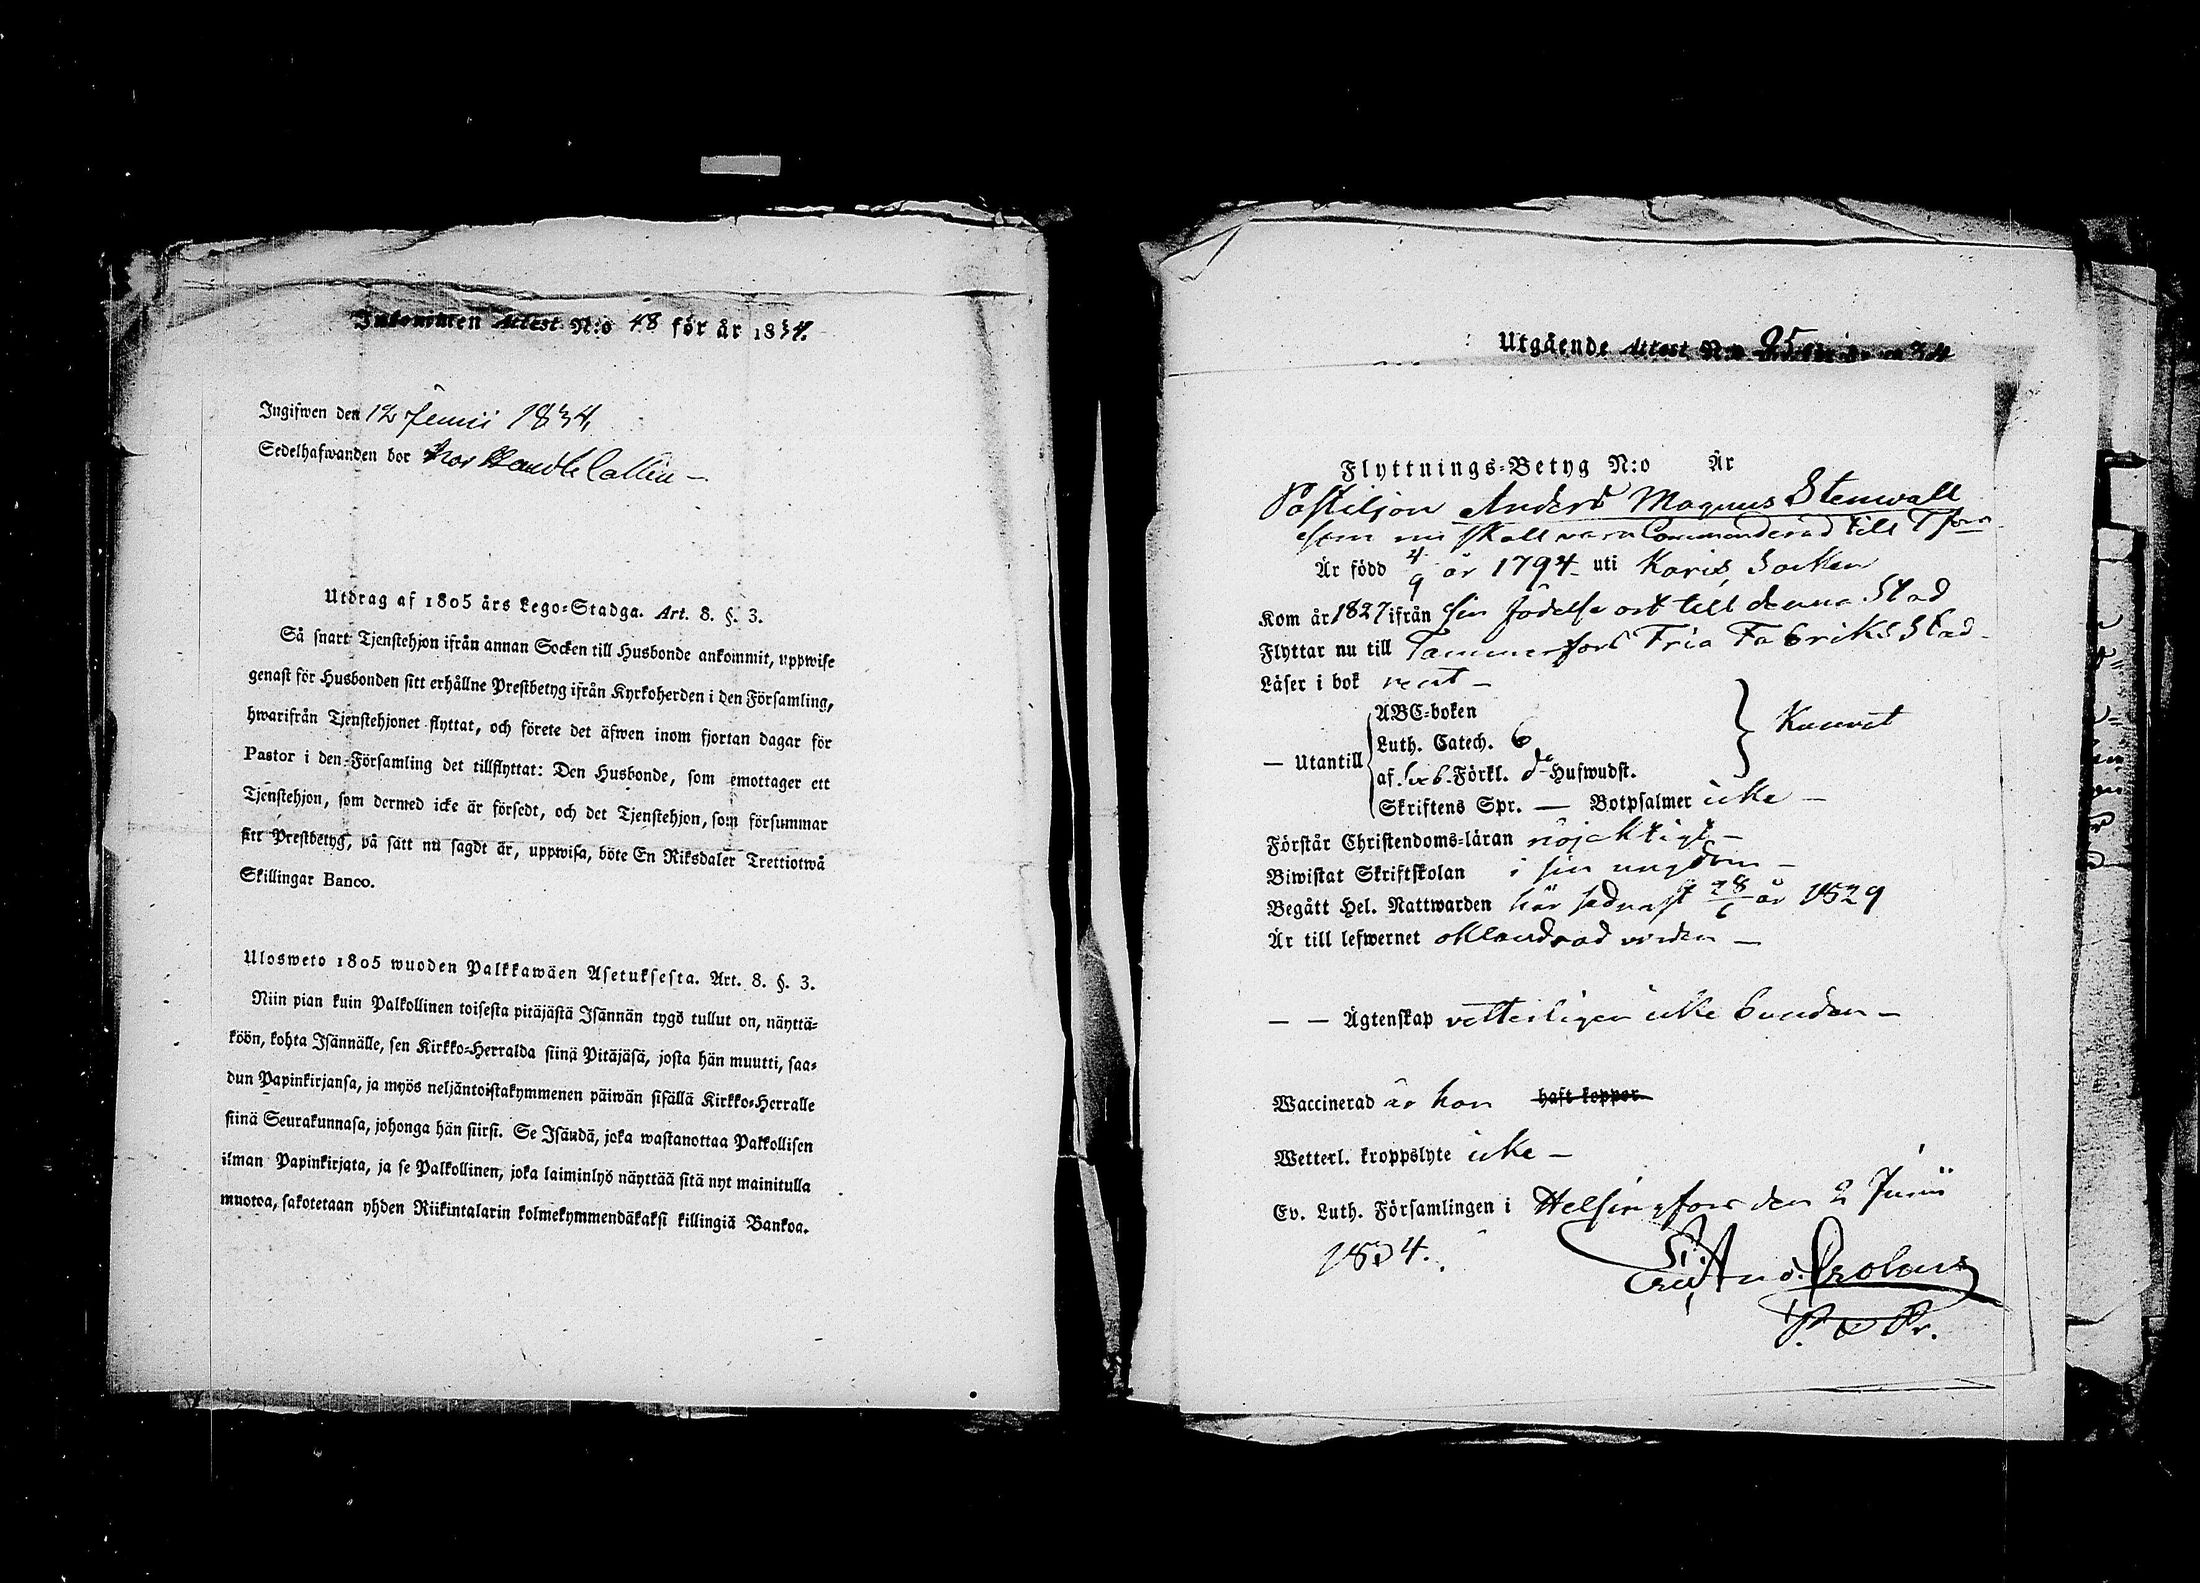 Inkommen Attest N:o 48 för år 1834.
Ingifwen den 12 Junii 1834,
Sedelhafwanden bor hos Handl Collin –
Utdrag af 1805 års Lego=Stadga. Art. 8. §. 3.
Så snart Tjenstehjon ifrån annan Socken till Husbonde ankommit, uppwise
genast för Husbonden sitt erhållne Prestbetyg ifrån Kyrkoherden i den Församling,
hwarifrån Tjenstehjonet flyttat, och förete det äfwen inom fjortan dagar för
Pastor i den Församling det tillflyttat: Den Husbonde, som emottager ett
Tjenstehjon, som dermed icke är försedt, och det Tjenstehjon, som försummar
sitt Prestbetyg, på sätt nu sagdt är, uppwisa, böte En Riksdaler Trettiotwå
Skillingar Banco.
Ulosweto 1805 wuoden Palkkawäen Asetuksesta. Art. 8. §. 3.
Niin pian kuin Palkollinen toisesta pitäjästä Isännän tygö tullut on, näyttä=
köön, kohta Isännälle, sen Kirkko=Herralda siinä Pitäjäsä, josta hän muutti, saa=
dun Papinkirjansa, ja myös neljäntoistakymmenen päiwän sisällä Kirkko=Herralle
siinä Seurakunnasa, johonga hän siirsi. Se Isändä, joka wastanottaa Palkollisen
ilman Papinkirjata, ja se Palkollinen, joka laiminlyö näyttää sitä nyt mainitulla
muotoa, sakotetaan yhden Riikintalarin kolmekymmendäkaksi killingiä Bankoa.
Utgående Attest N:o 95 34
Flyttnings=Betyg N:o År
Postiljon Anders Magnus Stenwall
som nu skall vara Commenderad till Tfors
Är född 4/9 år 1794 uti Karis Socken
Kom år 1827 ifrån sin födelse ort till denna Stad
Flyttar nu till Tammerfors Fria Fabriks Stad –
Läser i bok rent –
ABC=boken
Luth. Catech. 6
— Utantill Kunnat
af Sveb. Förkl. de Hufwudst.
Skriftens Spr. — Botpsalmer icke –
Förstår Christendoms=läran nöjaktigt –
Biwistat Skriftskolan i sin ungdom –
Begått Hel. Nattwarden här sednast 28/6 år 1829
Är till lefwernet oklandrad vorden –
— — Ägtenskap vetterligen icke bunden –
Waccinerad är han haft koppor
Wetterl. kroppslyte icke –
Ev. Luth. Församlingen i Helsingfors den 2 Junii
1834.
P. &amp; Pr.